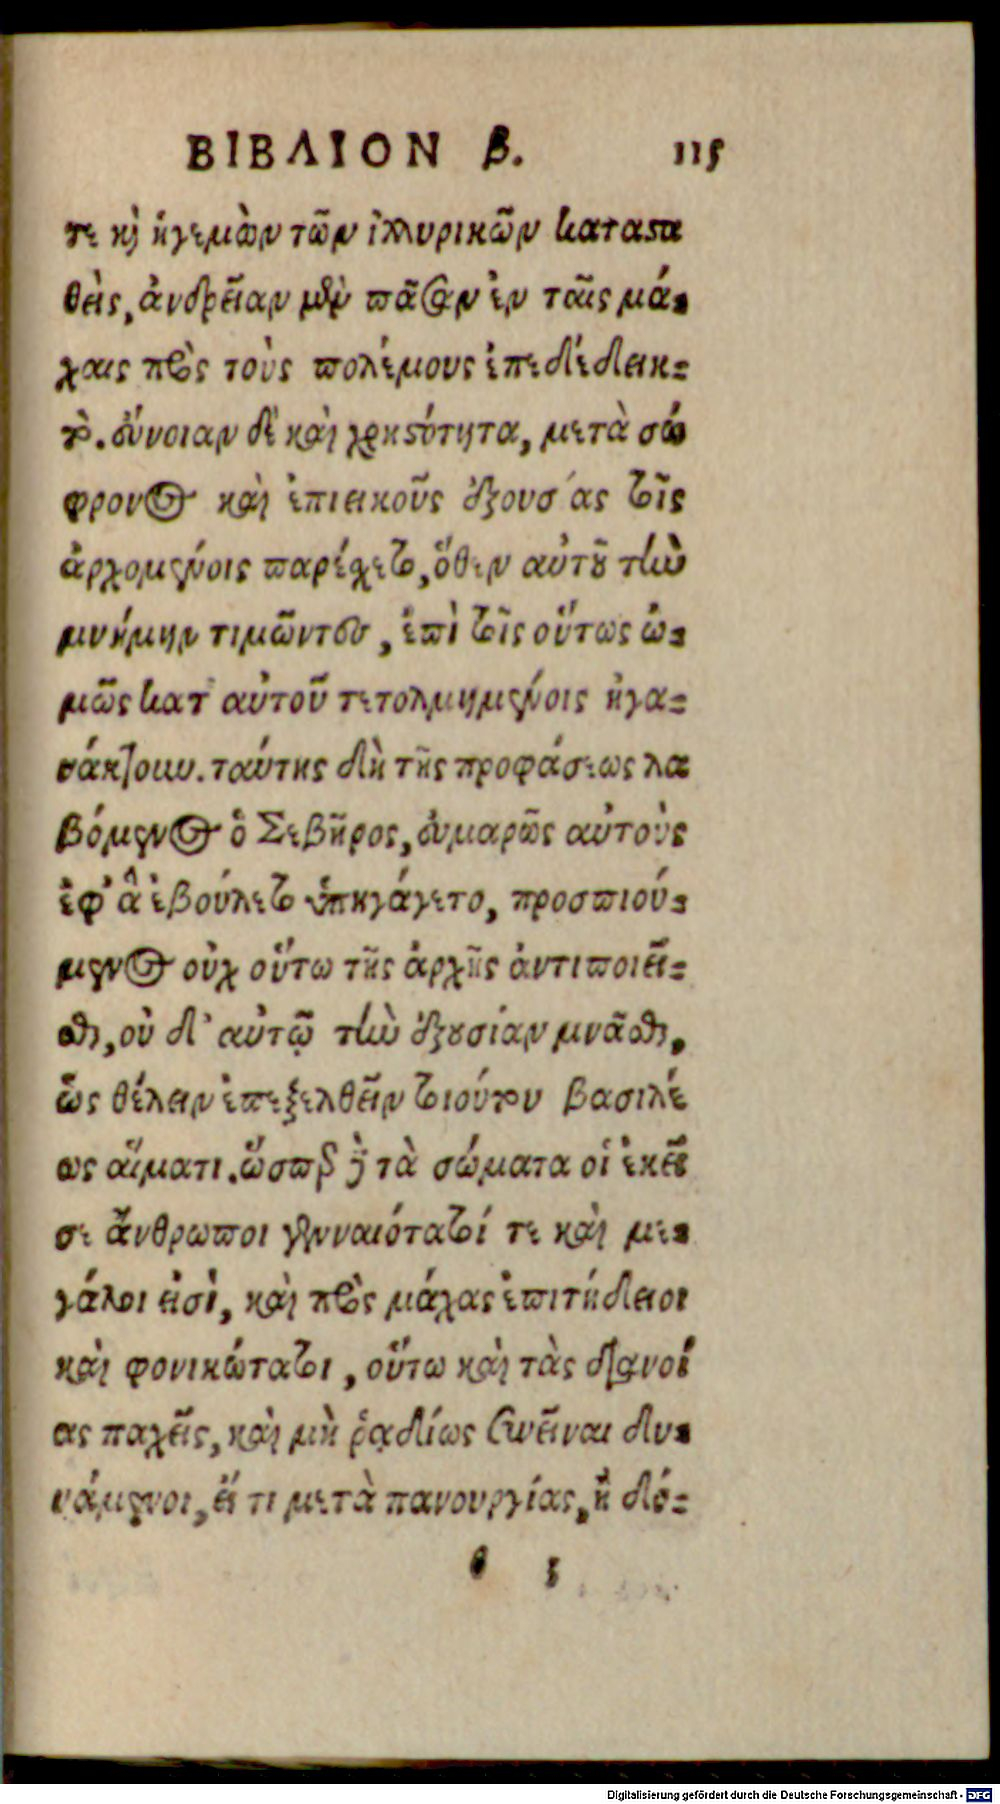 ΒΙΒΛΙΟΝ β. 115
τε καὶ ἡγεμὼν τῶν ἰλλυρικῶν κατασα
θεὶς, ἀνδρείαν μὲν πᾶσαν ἐν ταῖς μά-
χαις πρὸς τοὺς πολέμους ἐπεδέδεικ-
το. εὔνοιαν δὲ καὶ χρηστότητα, μετὰ σώ
φρονος καὶ ἐπιεικοῦς ἐξουσίας τοῖς
ἀρχομένοις παρέχετο, ὅθεν αὐτοῦ τὴν
μνήμην τιμῶντες, ἐπὶ τοῖς οὕτως ὠ-
μῶς κατ' αὐτοῦ τετολμημένοις ἠγα-
νάκτουν. ταύτης δὴ τῆς προφάσεως λα
βόμενος ὁ Σεβῆρος, εὐμαρῶς αὐτοὺς
ἐφ' ἃ ἐβούλετο ὑπηγάγετο, προσποιού-
μενος οὐχ οὕτω τῆς ἀρχῆς ἀντιποιεῖ-
σθαι, οὐδ' αὐτῷ τὴν ἐξουσίαν μνᾶσθαι,
ὡς θέλειν ἐπεξελθεῖν τοιούτου βασιλέ
ως αἵματι. ὥσπερ δὲ τὰ σώματα οἱ ἐκεῖ
σε ἄνθρωποι γενναιότατοί τε καὶ με-
γάλοι εἰσὶ, καὶ πρὸς μάχας ἐπιτήδειοι
καὶ φονικώτατοι, οὕτω καὶ τὰς διανοί
ας παχεῖς, καὶ μὴ ῥᾳδίως συνεῖναι δυ-
νάμενοι, εἴ τι μετὰ πανουργίας, ἢ δό-
Digitalisierung gefördert durch die Deutsche Forschungsgemeinschaft - DFG